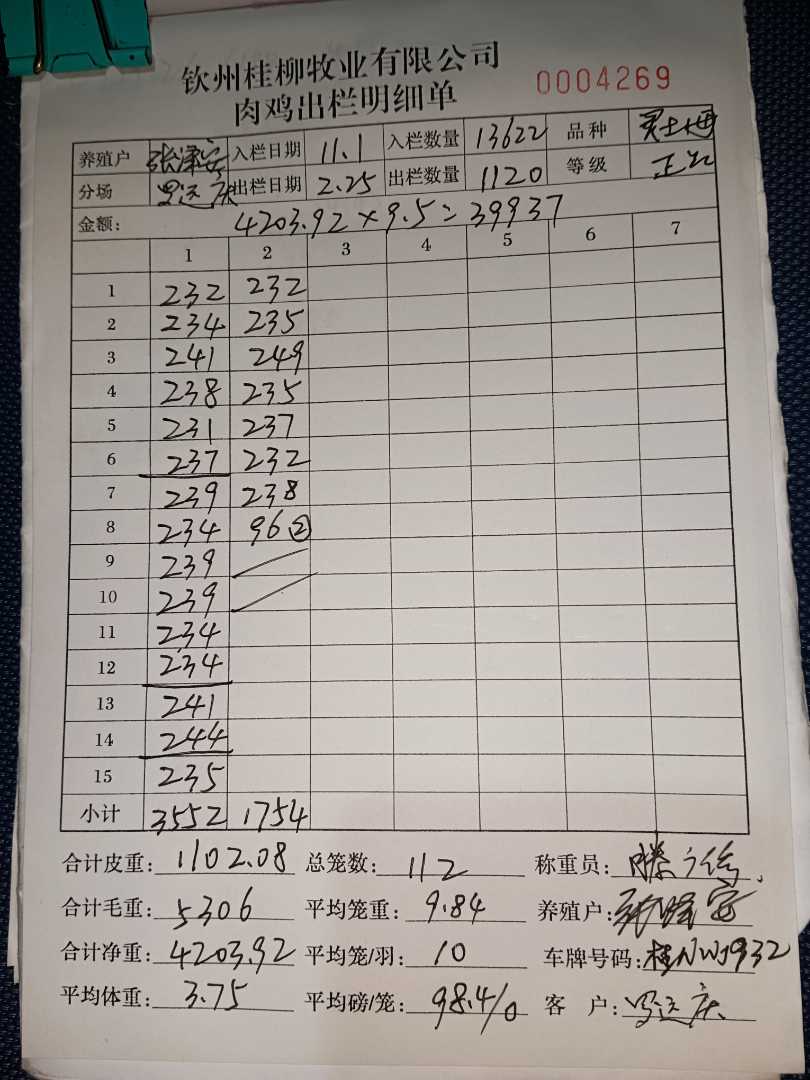 钦州桂柳牧业有限公司
肉鸡出栏明细单
0004269
养殖户 入栏日期 11.1 入栏数量 13622 品种
分场 罗运庆 出栏日期 2.25 出栏数量 1120 等级 正品
金额: 4203.92×9.5=39937
1 2 3 4 5 6 7
1 232 232
2 234 235
3 241 249
4 238 235
5 231 237
6 237 232
7 239 238
8 234 96②
9 239
10 239
11 234
12 234
13 241
14 244
15 235
小计 3552 1754
合计皮重: 1102.08 总笼数: 112 称重员:
合计毛重: 5306 平均笼重: 9.84 养殖户:
合计净重: 4203.92 平均笼/羽: 10 车牌号码: 桂NWJ932
平均体重: 3.75 平均磅/笼: 98.4/0 客户: 罗运庆